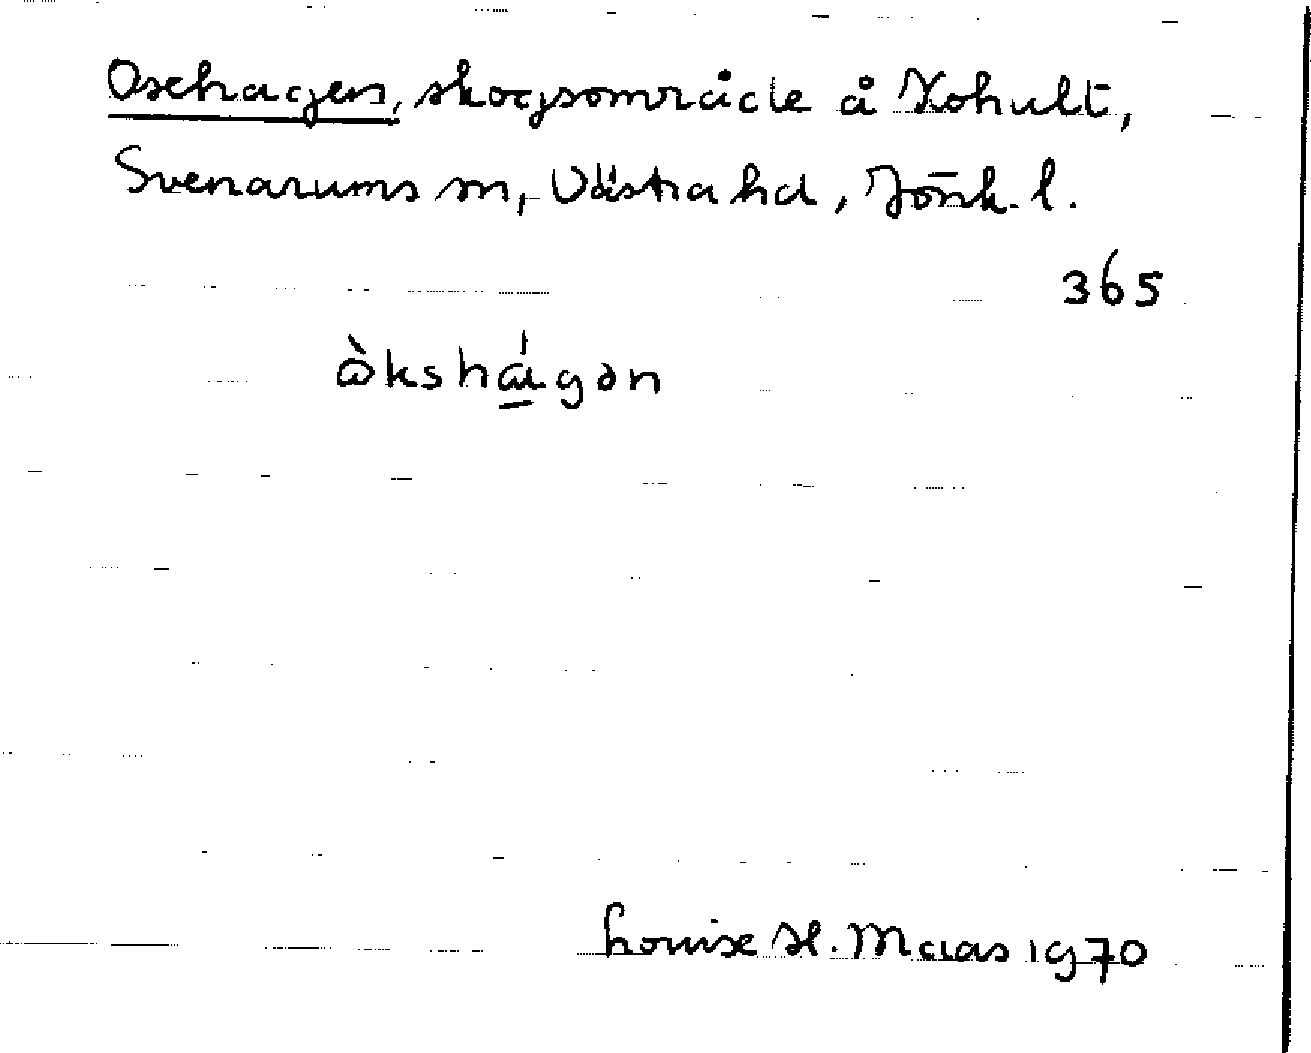 Oxehagen, skogsområde å Kohult,
Svenarums sn, Västra hd, Jönk. l.
365
ɷ̀ksháɩgən
Louise H. Maas 1970